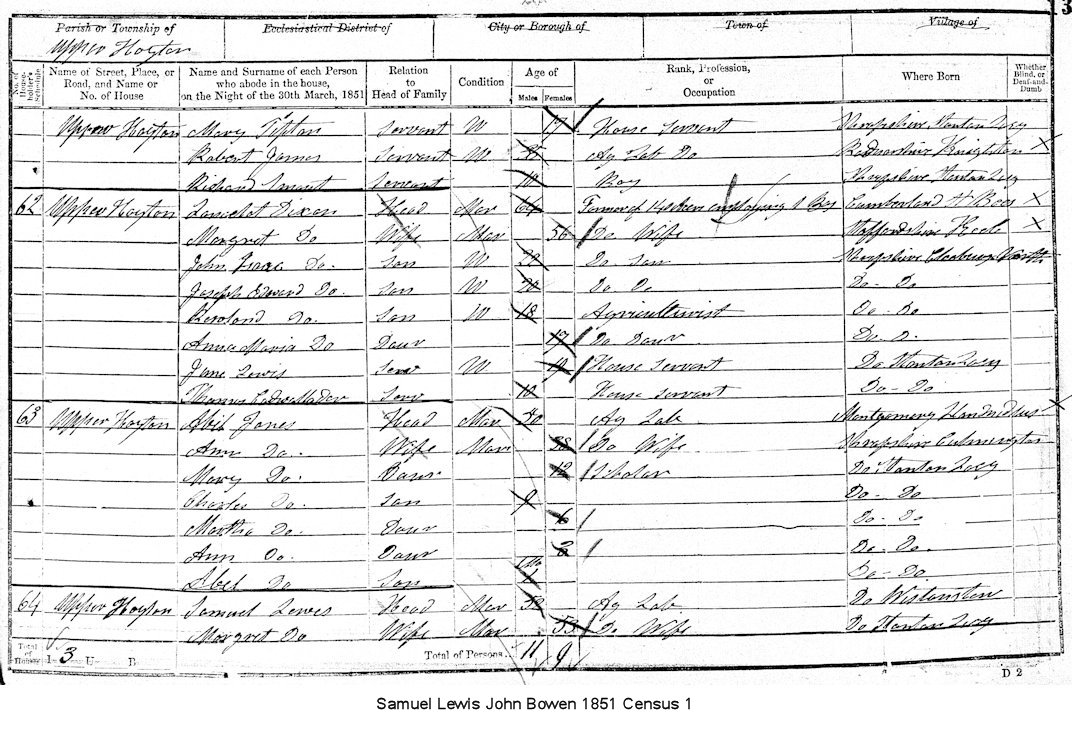 Parish or Township of Ecclesiastical District of City or Borough of Town of Village of
Upper Hayton
No. of Householder's Schedule Name of Street, Place, or Road, and Name or No. of House Name and Surname of each Person who abode in the house, on the Night of the 30th March, 1851 Relation to Head of Family Condition Age of Males Females Rank, Profession, or Occupation Where Born Whether Blind, or Deaf-and-Dumb
Upper Hayton Mary Tipton Servant U 17 House Servant Shropshire Stanton Lacy
Robert James Servant U Ag Lab Do Radnorshire Knighton
Richard Servant Boy Shropshire Stanton Lacy
62 Upper Hayton Lancelot Dixon Head Mar 64 Farmer of employing Cumberland
Margret Do Wife Mar 56 Do Wife Staffordshire Keele
John Isaac Do. Son U 22 Do Son Shropshire Cleobury North
Joseph Edward Do. Son U 20 Do Do Do - Do
Rowland Do. Son U 18 Agriculturist Do - Do
Anna Maria Do Daur 17 Do Daur Do. D.
Jane Lewis Serv U 19 House Servant Do Stanton Lacy
Thomas Cadwallader Serv 10 House Servant Do - Do
63 Upper Hayton Abel Jones Head Mar 40 Ag Lab Montgomery
Ann Do. Wife Mar 38 Do Wife Shropshire Culmington
Mary Do. Daur 12 Scholar Do. Stanton Lacy
Charles Do. Son 9 Do - Do
Martha Do. Daur 6 Do - Do
Ann Do. Daur Do - Do.
Abel Do Son Do - Do
64 Upper Hayton Samuel Lewis Head Mar 52 Ag Lab Do Wistanstow
Margret Do Wife Mar 53 Do Wife Do Stanton Lacy
Total of Houses I 3 U B Total of Persons 11 9
D 2
Samuel Lewis John Bowen 1851 Census 1